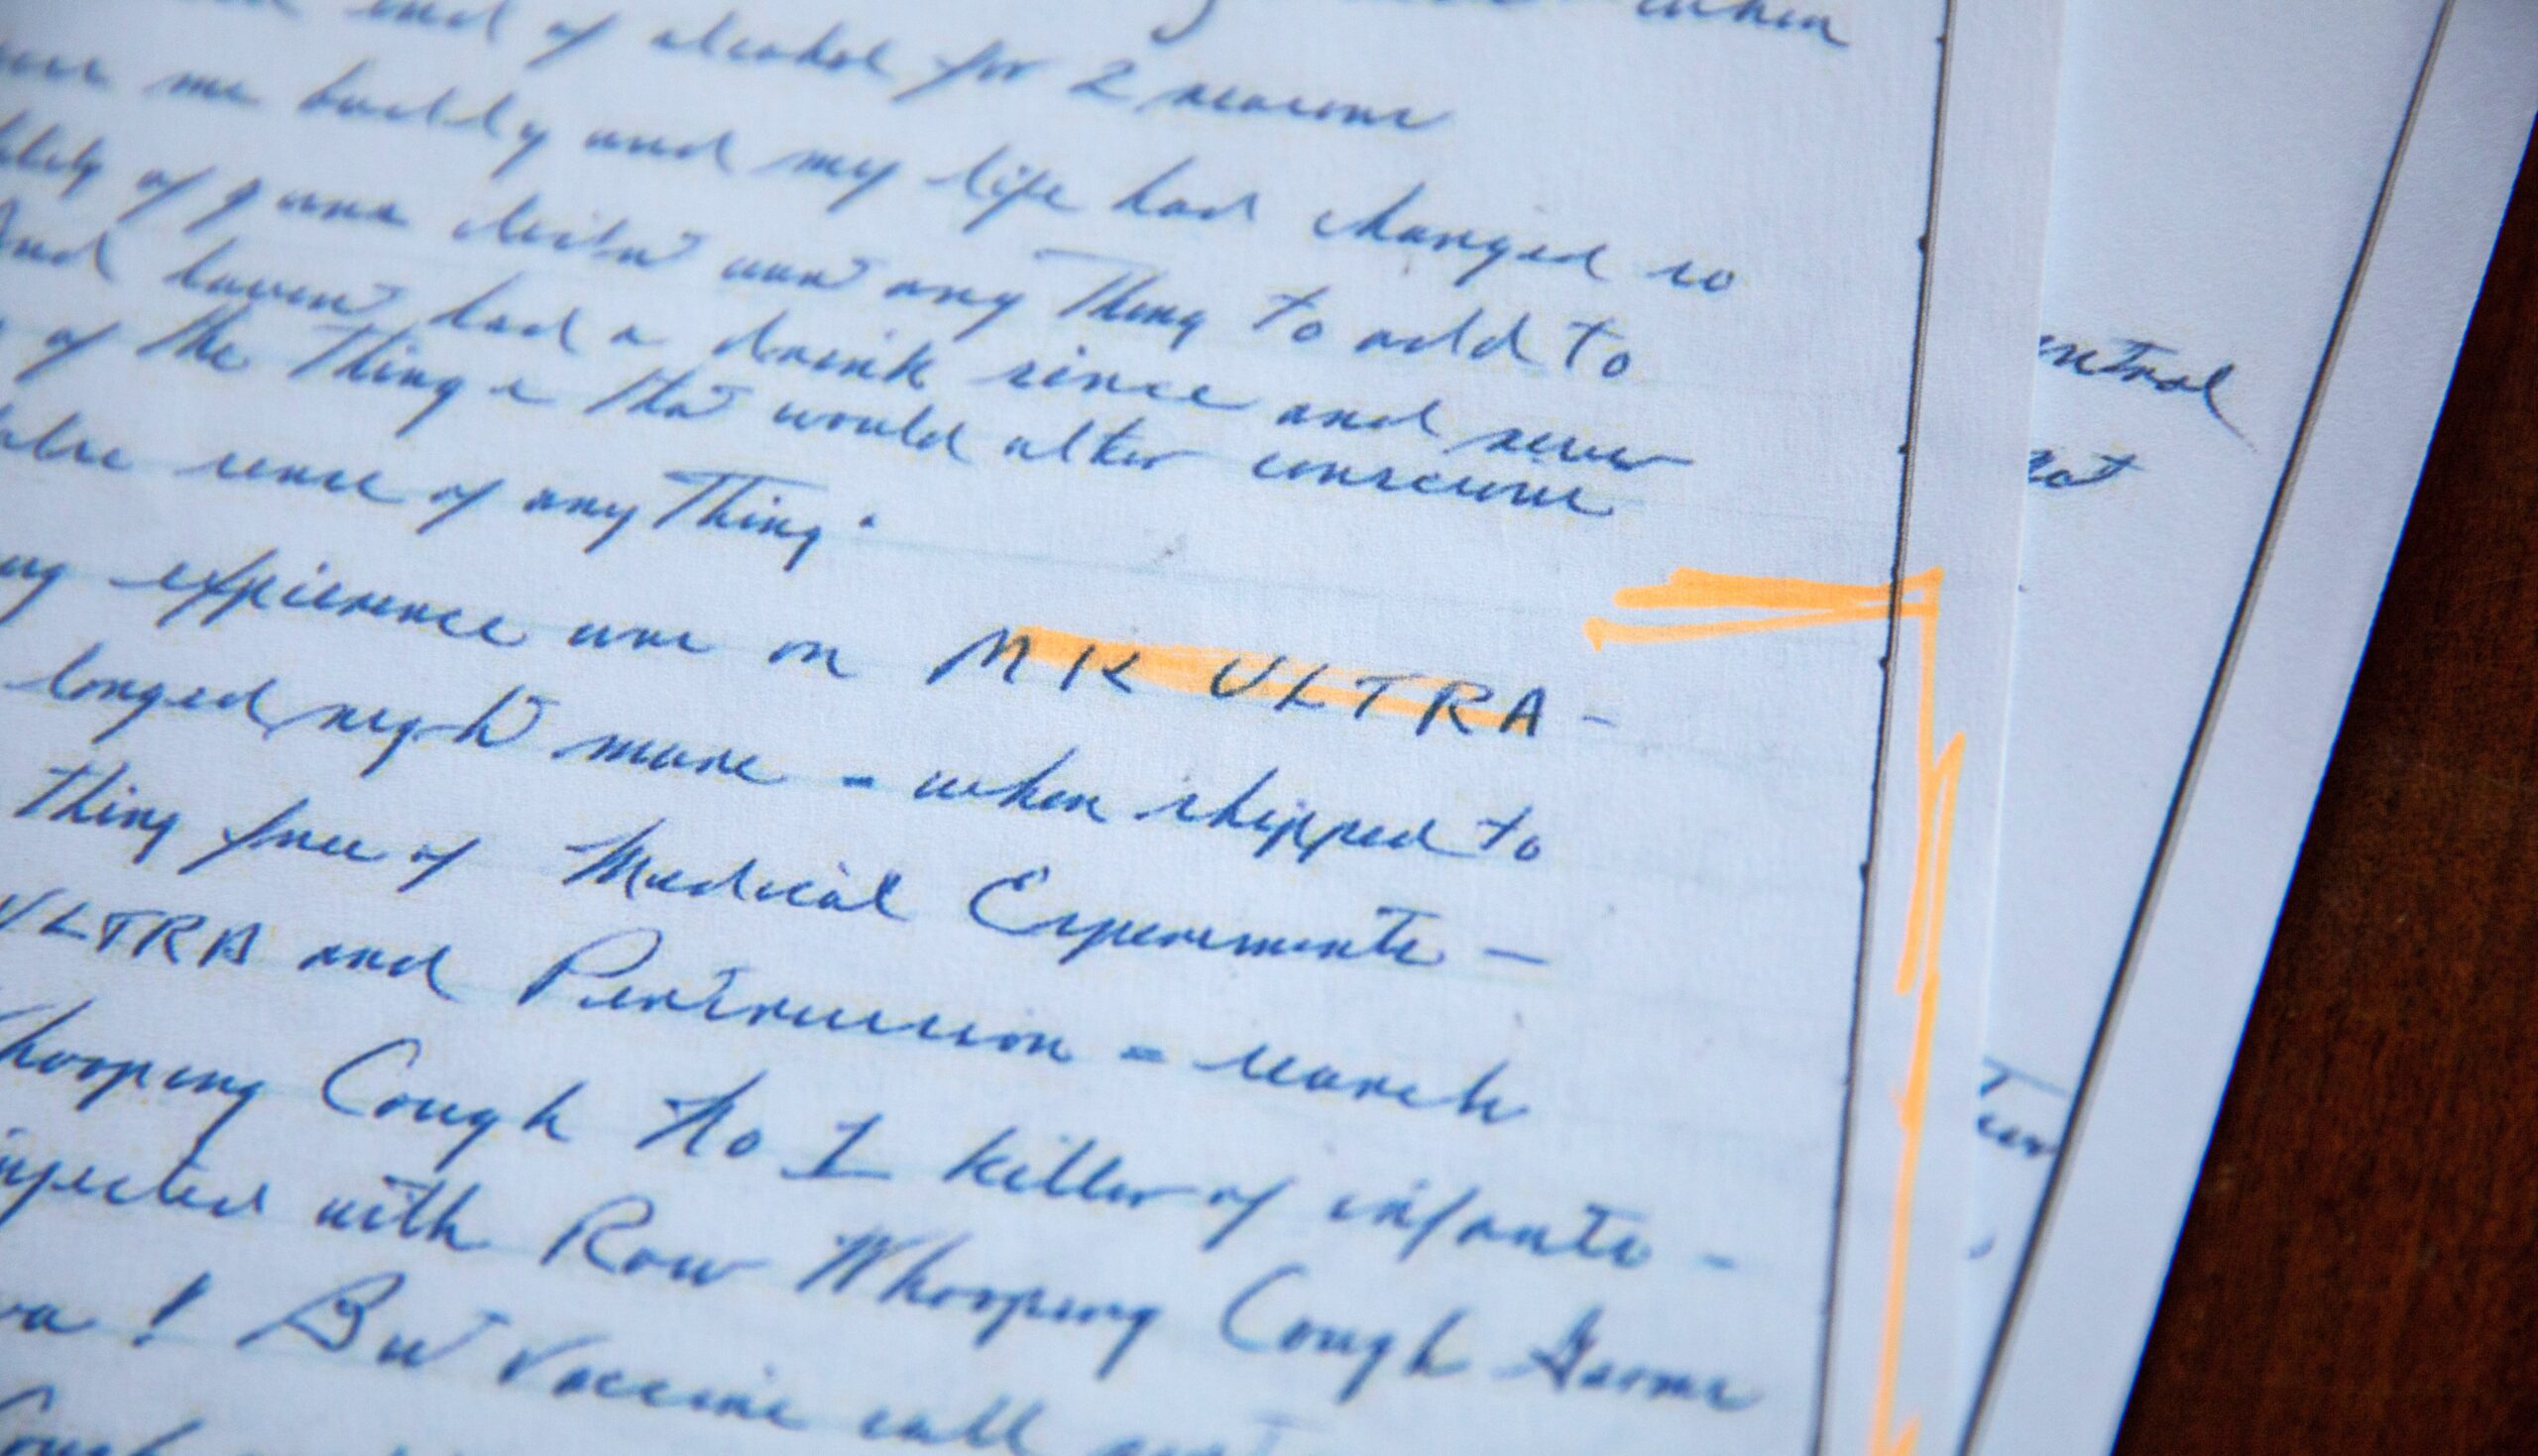 when
end of alcohol for 2 reasons
me buddy and my life had changed so
of years didn't want any Thing to add to
And haven't had a drink since and never
of the Things that would alter conscious
sense of any Thing.
expierence was on MK ULTRA -
longed night mare - when shipped to
thing free of Medical Experiments -
ULTRA and Pertrussion - search
Whooping Cough No 1 killer of infants -
injected with Raw Whooping Cough Germs
! But Vaccine call
Cough
not